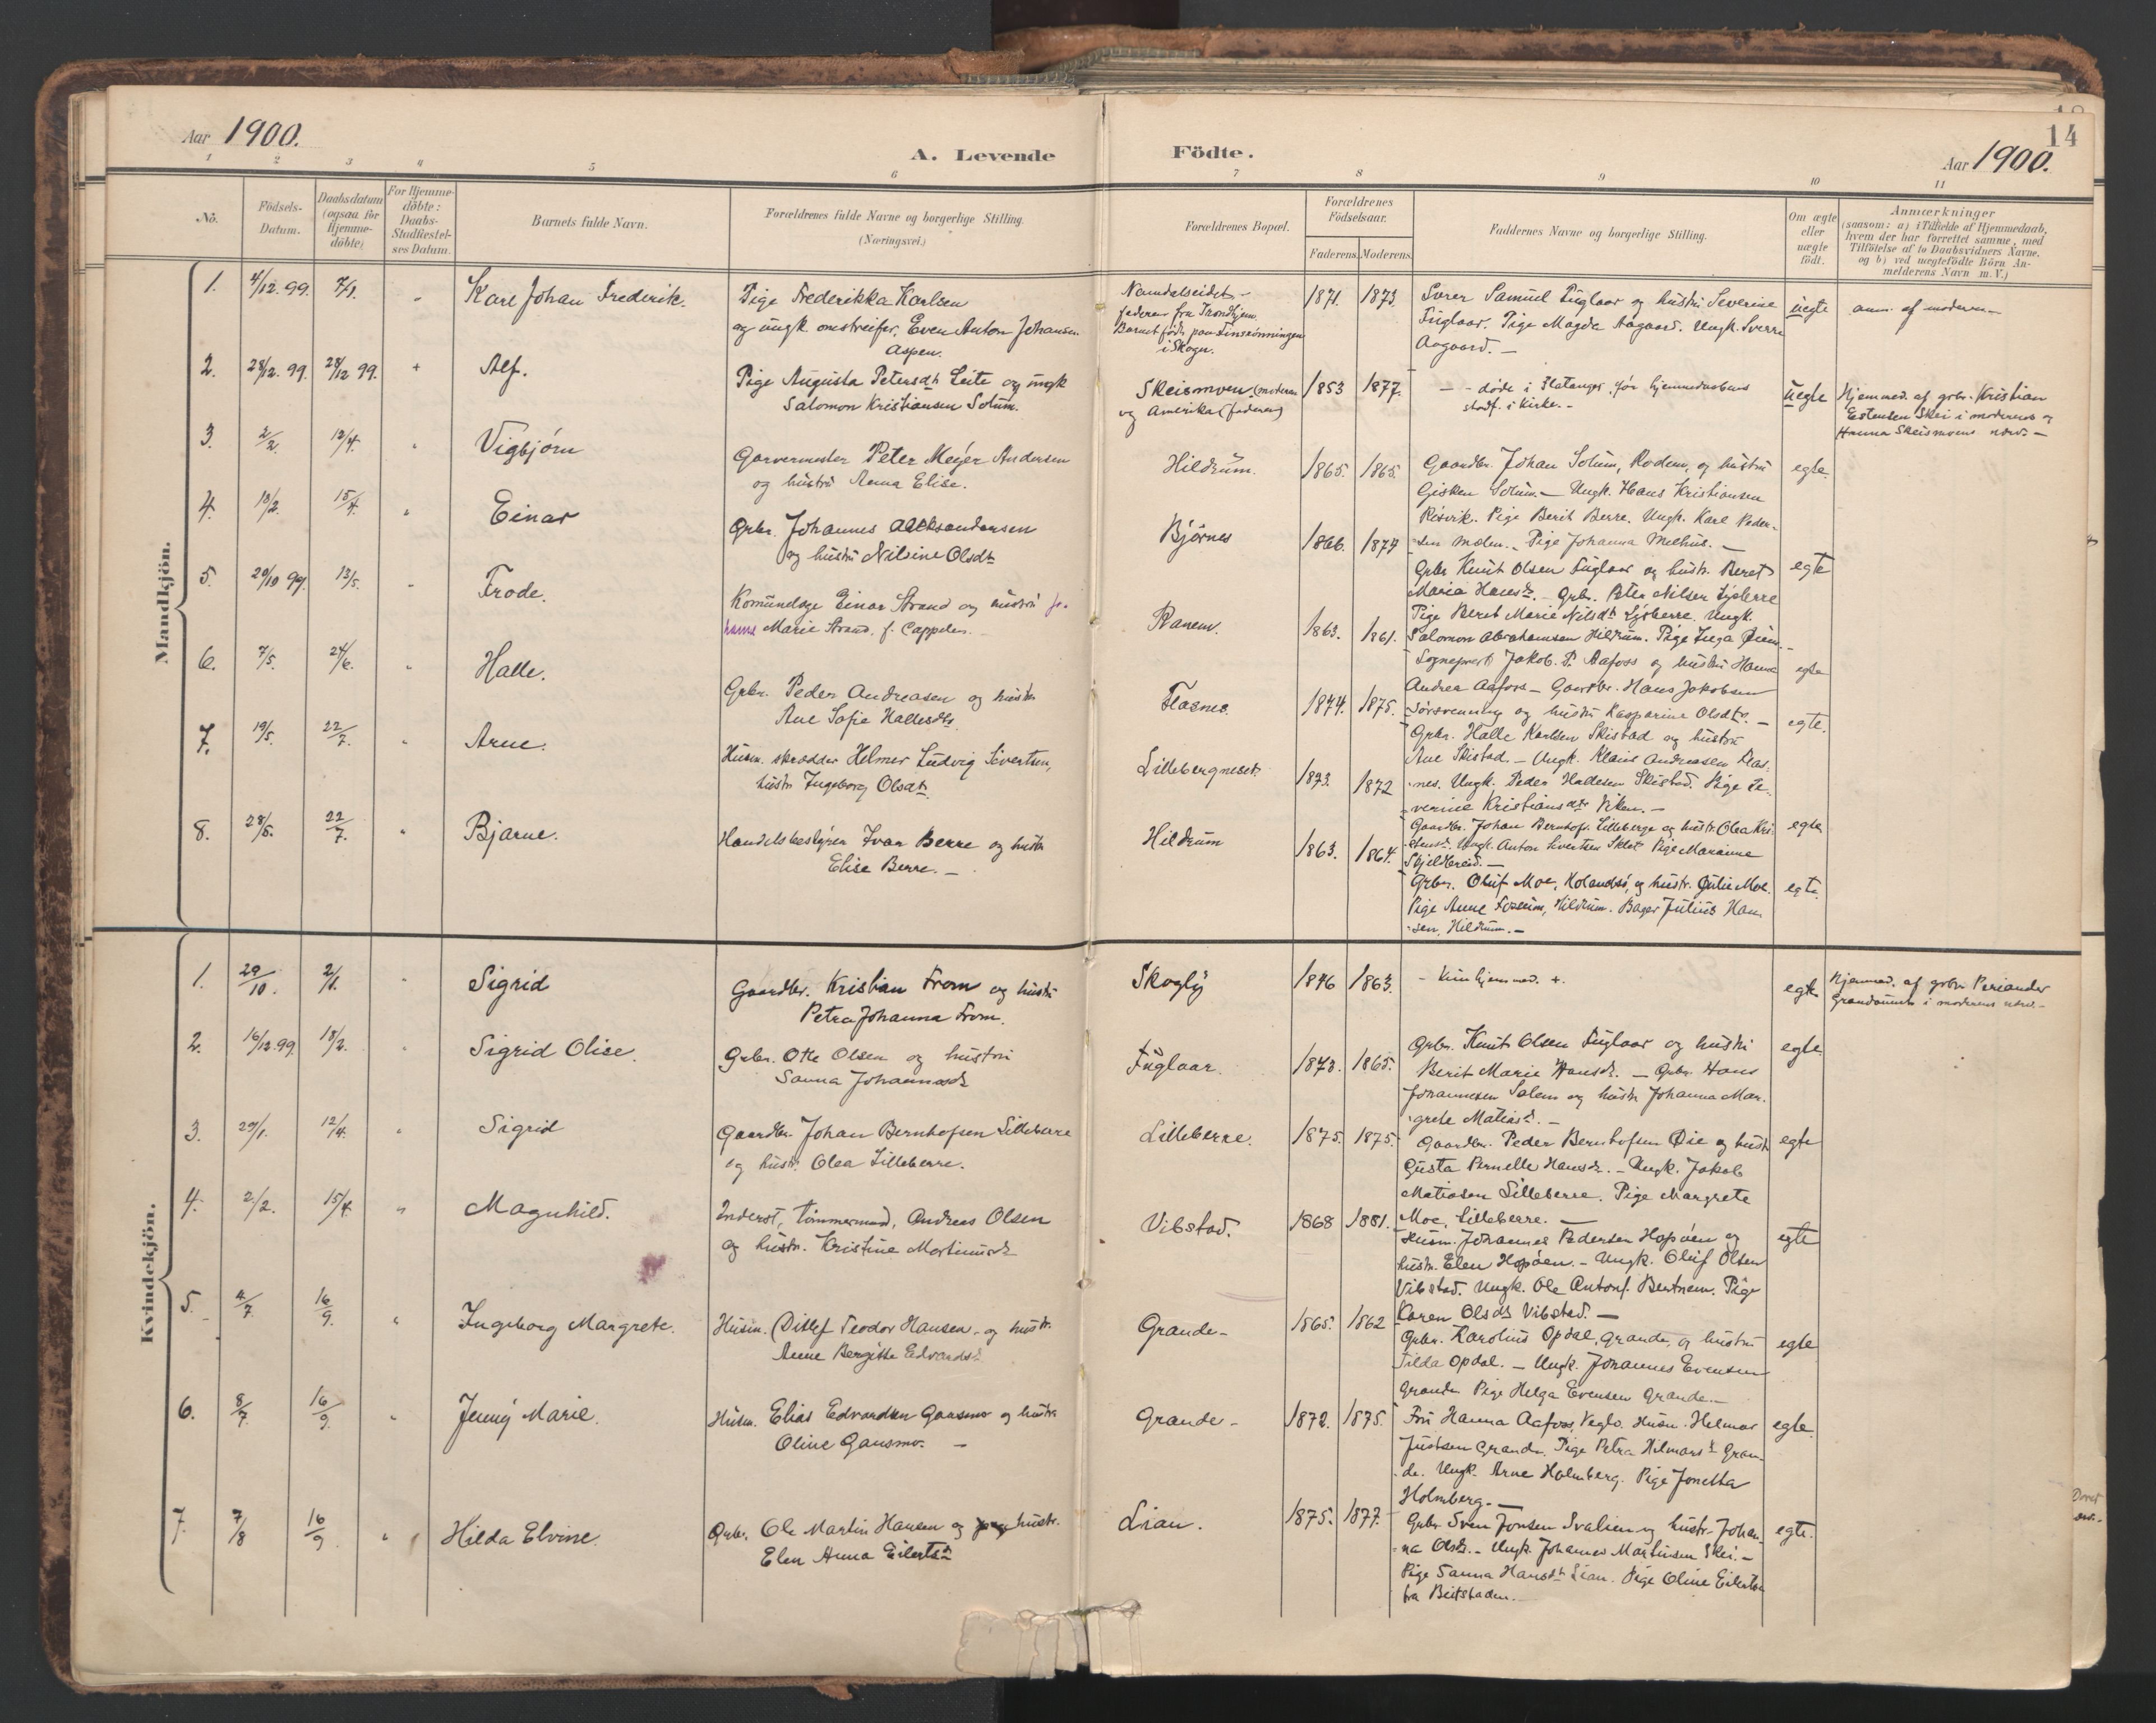 14
Aar 1900.
A. Levende Födte.
Aar 1900.
1 2 3 4 5 6 7 8 9 10 11
No.
Födsels-
Datum.
Daabsdatum
(ogsaa for
Hjemme-
döbte)
For Hjemme-
döbte:
Daabs-
Stadfæstel-
ses Datum.
Barnets fulde Navn.
Forældrenes fulde Navne og borgerlige Stilling.
(Næringsvei.)
Forældrenes Bopæl.
Forældrenes
Födselsaar.
Faderens. Moderens.
Faddernes Navne og borgerlige Stilling.
Om ægte
eller
uægte
födt.
Anmærkninger
(saasom: a) i Tilfælde af Hjemmedaab,
hvem der har forrettet samme, med
Tilföielse af to Daabsvidners Navne,
og b) ved uægtefödte Börn An-
melderens Navn m. V.)
Mandkjön.
1. 4/12.99. 7/1. Karl Johan Frederik.
Pige Frederikka Karlsen
og ungk. omstreifer, Even Anton Johansen
Aspen.
Namdalseidet -
faderen fra Trondhjem.
i Skogn.
1871. 1873.
Samuel Fuglaar og hustru Severine
Fuglaar. Pige Magda Aagaard. Ungk. Sverre
Aagaard. -
uegte
anm. af moderen -
2. 28/12.99. 28/12 99. + Alf.
Pige Augusta Petersdt Leite og ungk
Salomon Kristiansen Solum.
Skeismoen (moderen
og Amerika (faderen)
1853 1877.
- - døde i Flatanger før hjemmedaabens
stadf. i kirke. -
uegte
Hjemmed. af grbr. Kristian
Estensen Skei i moderens og
Hanna Skeismoens nærv. -
3. 2/2. 13/4. Vigbjørn
Garvermester Peter Meyer Andersen
og hustru Anna Elise.
Hildrum.
1865. 1865.
Gaardbr. Johan Solum, Rodem, og hustru
Gisken Solum. - Ungk. Hans Kristiansen
Risvik. Pige Berit Berre. Ungk. Karl Peder-
sen Moen. - Pige Johanna Melhus. -
egte.
4. 13/2. 15/4. Einar
Grbr. Johannes Aleksandersen
og hustru Nilsine Olsdt
Bjørnes
1866. 1874
Grbr Knut Olsen Fuglaar og hustr. Beret
Maria Hansdt. - Grbr. Peter Nilsen
Pige Beret Marie Nilsdt Ungk.
Salomon Abrahamsen Hildrum. Pige Inga
egte
5. 20/10 99. 13/5. Frode.
Einar Strand og hustru Jo-
hanna Marie Strand, f. Cappelen. -
Ranem.
1863. 1861.
Sogneprest Jakob P. Aafoss og hustru Hanna
Andrea Aafoss - Gaardbr. Hans Jakobsen
Sørsvenning og hustru Kasparine Olsdtr. -
egte
6. 7/5. 24/6. Halle.
Grbr. Peder Andreasen og hustr
Ane Sofie Hallesdtr.
Flasnes.
1874. 1875.
Grbr. Halle Karlsen Skistad og hustru
Ane Skistad. - Ungk. Klaus Andreasen Flas-
nes. Ungk. Peder Hallesen Skistad. Pige Se-
verine Kristiansdtr Viken. -
egte.
7. 19/5. 22/7. Arne.
Husm. skrædder Helmer Ludvig Sivertsen,
hustr Ingeborg Olsdt.
Lillebergneset.
1873. 1872
Gaardbr. Johan Bernhofs. Lilleberge og hustr. Olea Kri-
Ungk. Anton Sivertsen Pige Marianne
egte
8. 28/5. 22/7. Bjarne.
Handelsbestyrer Ivar Berre og hustr
Elise Berre. -
Hildrum
1863. 1864.
Grbr. Oluf Moe, Holandsø, og hustr. Julie Moe.
Pige Anne Fossum, Hildrum. Bager Julius Han-
sen, Hildrum. -
egte.
Kvindekjön.
1. 29/10. 2/1. Sigrid
Gaardbr. Kristian From og hustru
Petra Johanna From.
Skogly
1876 1863.
- Kun hjemmed. +.
egte
Hjemmed. af grbr Periander
i moderens nærv. -
2. 16/12.99. 18/2. Sigrid Olise.
Grbr. Otte Olsen og hustru
Sanna Johannesdt.
Fuglaar.
1873. 1865.
Grbr. Knut Olsen Fuglaar og hustru
Berit Marie Hansdt. - Grbr. Hans
Johannesen Salem og hustr Johanna Mar-
grete Matiasdt. -
egte
3. 29/1. 12/4. Sigrid
Gaardbr. Johan Bernhofsen Lilleberre
og hustr. Olea Lilleberre.
Lilleberre.
1875. 1875.
Gaardbr. Peder Bernhofsen Øie og hust
Gusta Pernelle Hansdt. - Ungk. Jakob
Matiasen Lilleberre. Pige Margrete
Moe, Lilleberre. -
egte
4. 2/2. 15/4. Magnhild.
Inderst, tømmermand, Andreas Olsen
og hustr. Kristine Martinusdt
Vibstad.
1868 1881.
Husm. Johannes Pedersen Hopøen og
hustr. Elen Hopøen. - Ungk. Oluf Olsen
Vibstad. Ungk. Ole Antons. Bertnem. Pige
Karen Olsdt Vibstad. -
egte
5. 4/7 16/9 Ingeborg Margrete.
Husm. Ditlef Teodor Hansen og hustr.
Anne Bergitte Edvardsdt
Grande -
1865. 1862
Grbr. Karolius Opdal, Grande, og hustru
Tilda Opdal. - Ungk. Johannes Evensen
Grande Pige Helga Evensen Grande. -
egte
6. 8/7. 16/9. Jenny Marie.
Husm. Elias Edvardsen Gansmo og hustru
Oline Gansmo. -
Grande -
1872. 1875.
Fru Hanna Aafoss, Husm. Helmar
Justsen Grande. Pige Petra Hilmarsdt Gran-
de. Ungk. Arne Holmberg. Pige Jonetta
Holmberg. -
egte
7. 7/8 16/9. Hilda Elvine.
Grbr. Ole Martin Hansen og hustr.
Elen Anna Eilertsdt
Lian.
1875. 1877.
Grbr Sven Jonsen Svalien og hustr. Johan-
na Olsdt. - Ungk. Johannes Martinsen Skei. -
Pige Sanna Hansdt Lian. Pige Oline Eilertsen
fra Beitstaden. -
egte.